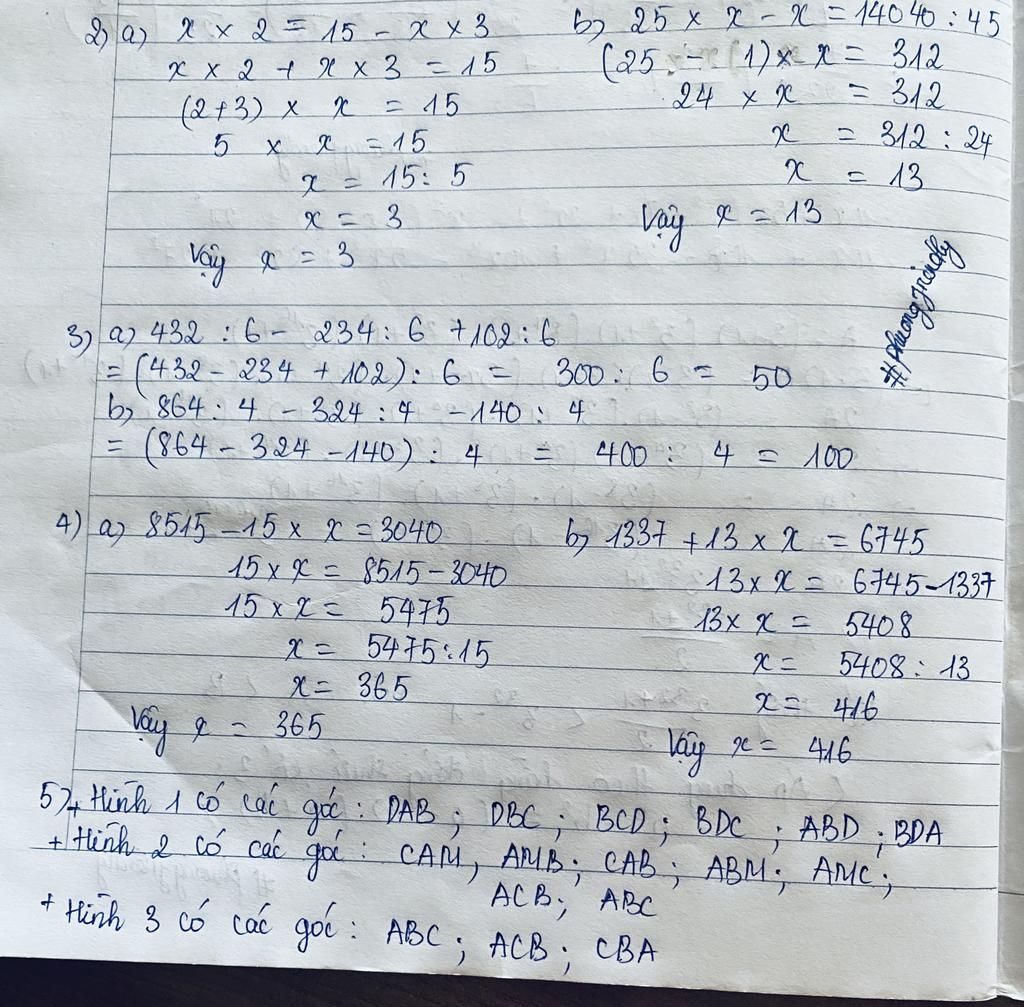 2) a) x × 2 = 15 - x × 3
x × 2 + x × 3 = 15
(2+3) × x = 15
5 × x = 15
x = 15 : 5
x = 3
Vậy x = 3
b) 25 × x - x = 14040 : 45
(25 - 1) × x = 312
24 × x = 312
x = 312 : 24
x = 13
Vậy x = 13
#phuongfriendly
3) a) 432 : 6 - 234 : 6 + 102 : 6
= (432 - 234 + 102) : 6 = 300 : 6 = 50
b) 864 : 4 - 324 : 4 - 140 : 4
= (864 - 324 - 140) : 4 = 400 : 4 = 100
4) a) 8515 - 15 × x = 3040
15 × x = 8515 - 3040
15 × x = 5475
x = 5475 : 15
x = 365
Vậy x = 365
b) 1337 + 13 × x = 6745
13 × x = 6745 - 1337
13 × x = 5408
x = 5408 : 13
x = 416
Vậy x = 416
5) + Hình 1 có các góc : DAB ; DBC ; BCD ; BDC ; ABD ; BDA
+ Hình 2 có các góc : CAM, AMB ; CAB ; ABM ; AMC ;
ACB ; ABC
+ Hình 3 có các góc : ABC ; ACB ; CBA